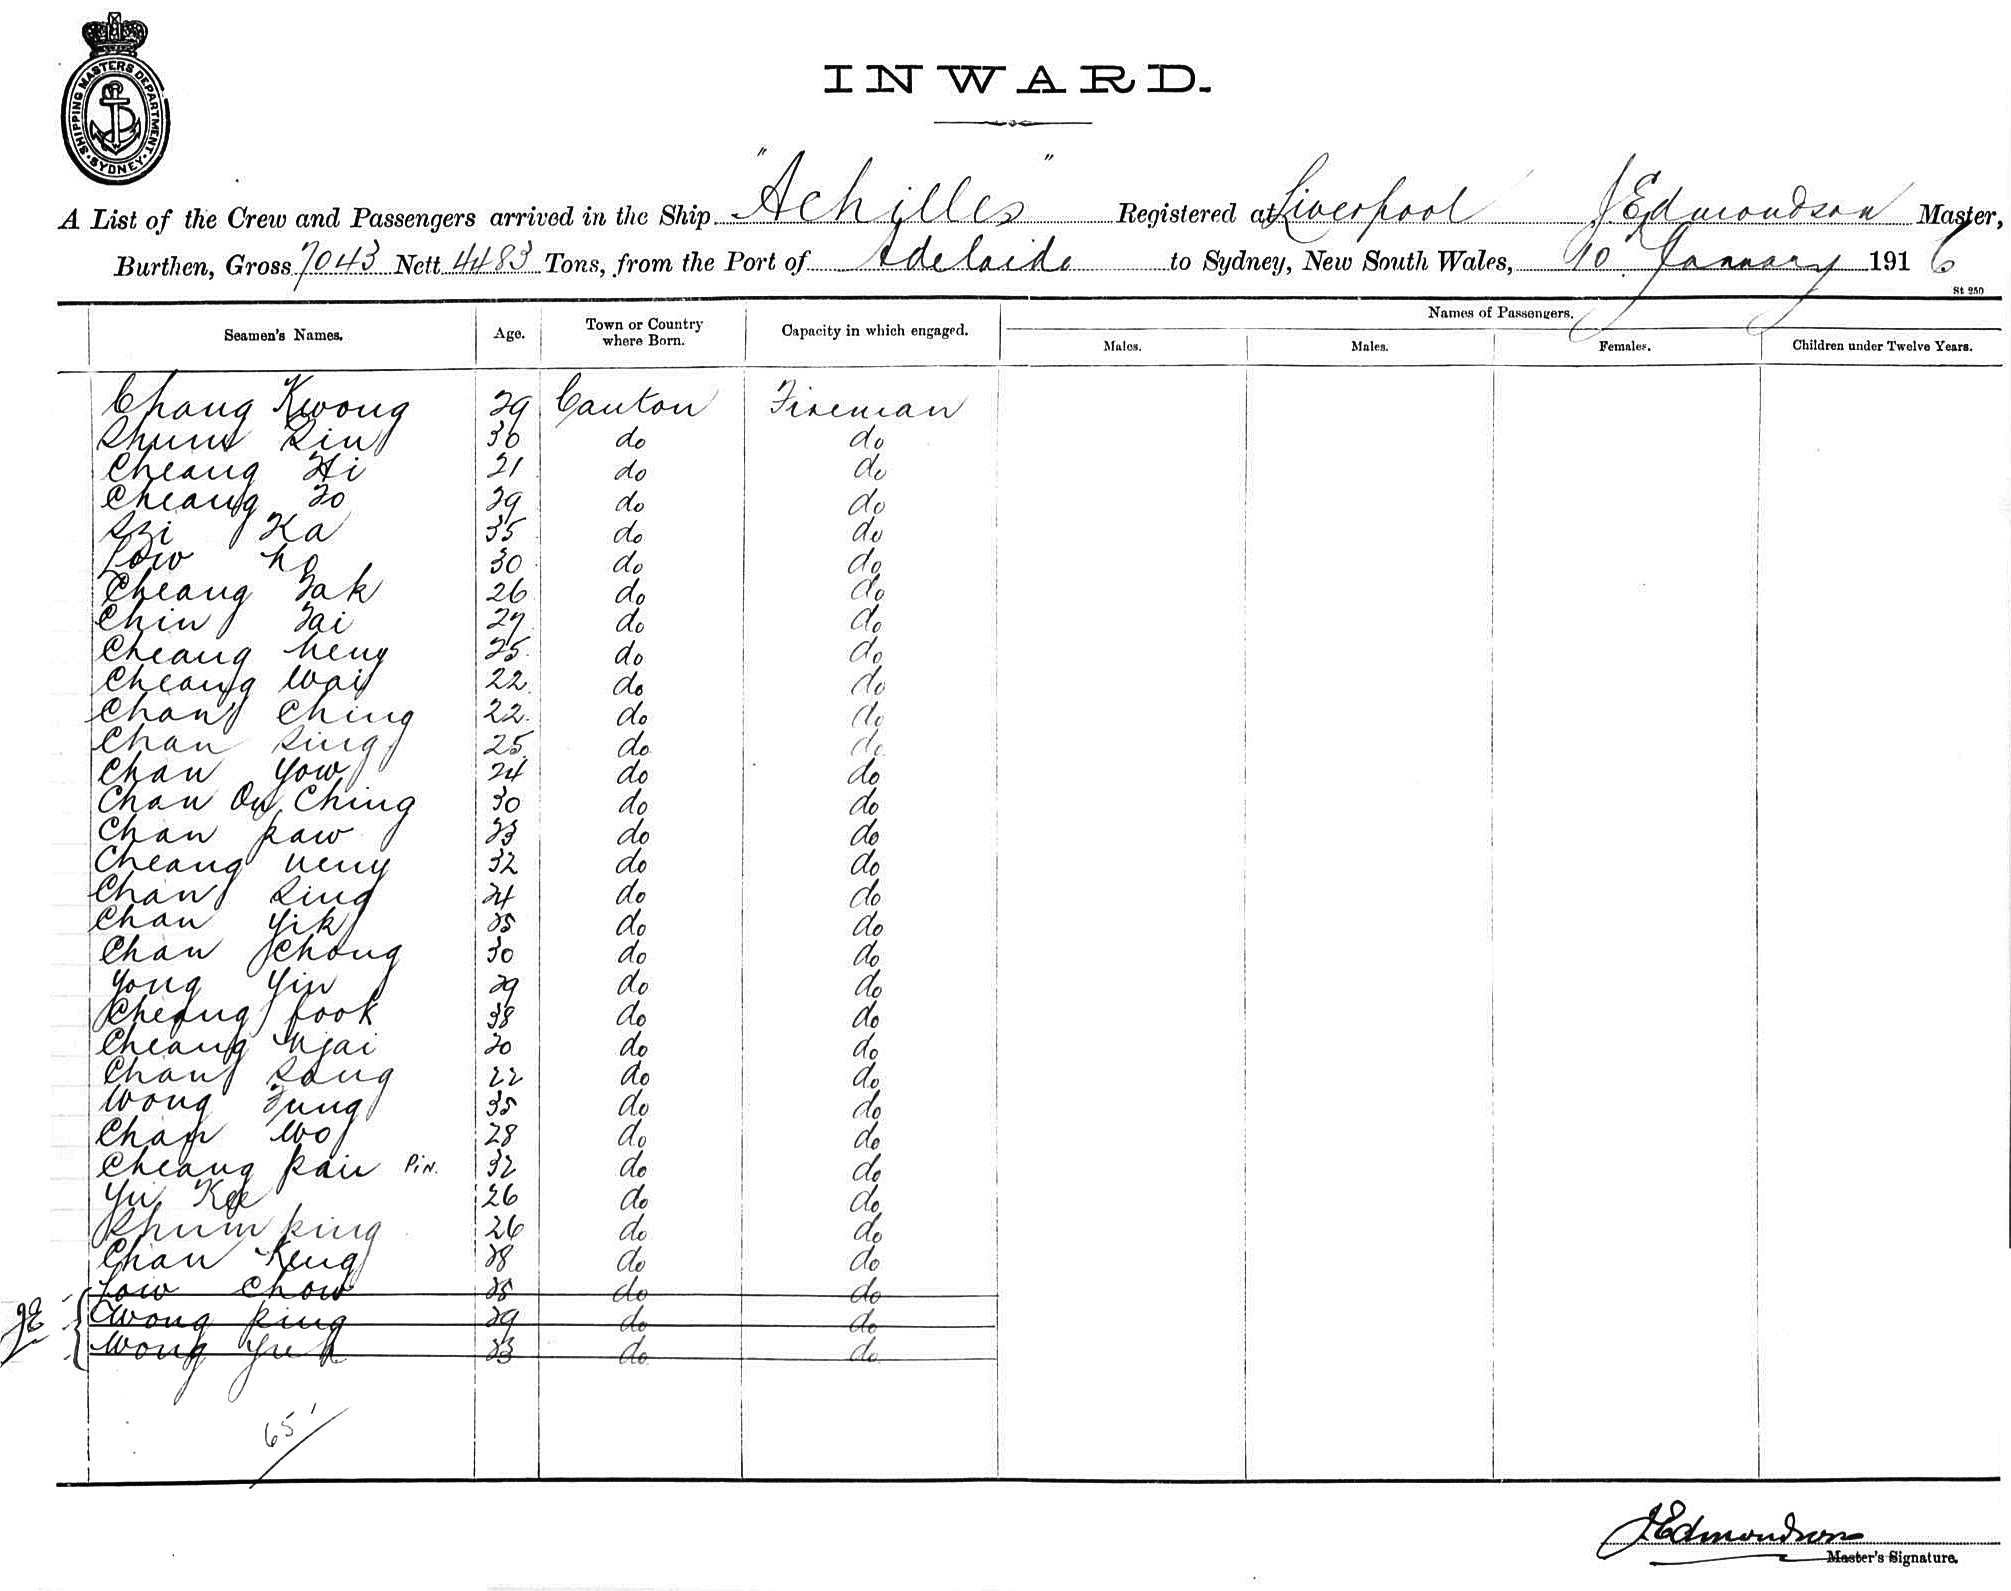 SHIPPING MASTERS DEPARTMENT · SYDNEY ·
INWARD.
A List of the Crew and Passengers arrived in the Ship "Achilles" Registered at Liverpool J Edmondson Master,
Burthen, Gross 7043 Nett 4483 Tons, from the Port of Adelaide to Sydney, New South Wales, 10 January 1916
St 250
Seamen's Names. Age. Town or Country where Born. Capacity in which engaged. Names of Passengers.
Males. Males. Females. Children under Twelve Years.
Chang Kwong 29 Canton Fireman
Shum Sin 30 do do
Cheang Hi 21 do do
Cheang To 29 do do
Szi Ka 35 do do
Low 30 do do
Cheang Tak 26 do do
Chin Tai 27 do do
Cheang Neng 25 do do
Cheang Wai 22 do do
Chan Ching 22 do do
Chan Sing 25 do do
Chan Yow 24 do do
Chan On Ching 30 do do
Chan Kaw 23 do do
Cheang Neng 32 do do
Chan Sing 24 do do
Chan Yik 25 do do
Chan Chong 30 do do
Yong Yin 29 do do
Cheong Fook 38 do do
Cheang Ngai 20 do do
Chan Sang 22 do do
Wong Tung 35 do do
Chan Wo 28 do do
Cheang Kan PIN. 32 do do
Yu Kee 26 do do
Shum King 26 do do
Chan Keng 28 do do
Low Chow 25 do do
JE Wong King 29 do do
Wong Yuk 23 do do
65
J Edmondson
Master's Signature.